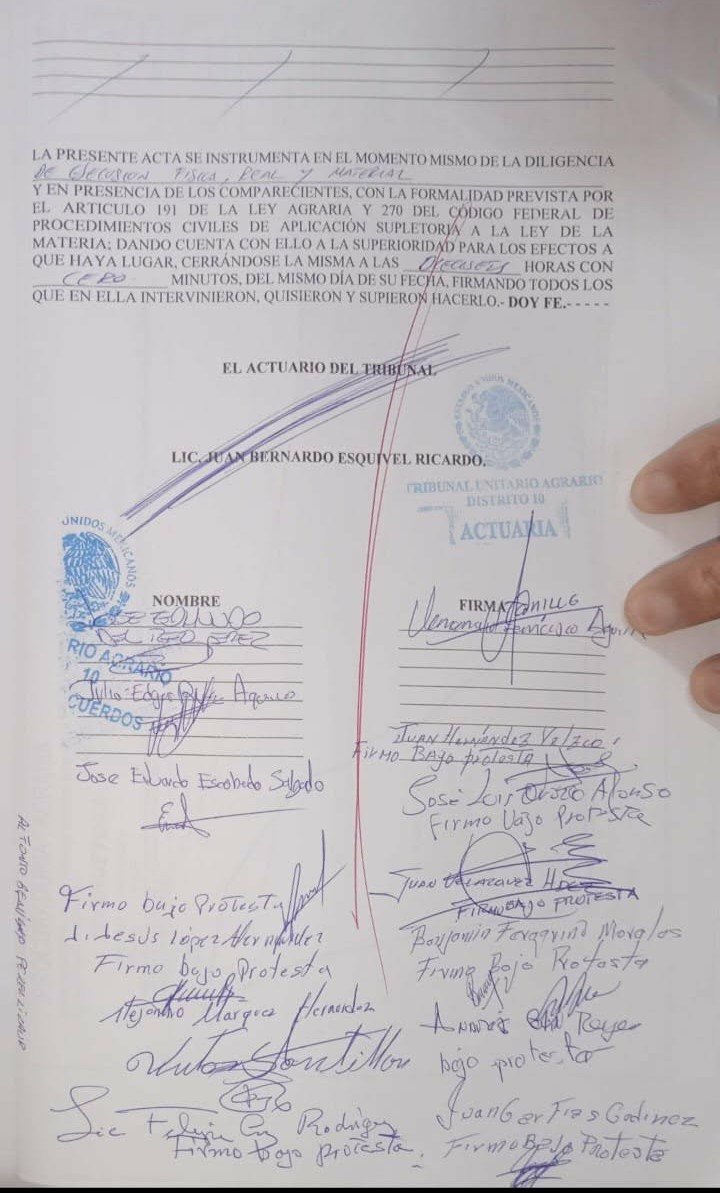 LA PRESENTE ACTA SE INSTRUMENTA EN EL MOMENTO MISMO DE LA DILIGENCIA
DE EJECUCION FISICA, REAL Y MATERIAL
Y EN PRESENCIA DE LOS COMPARECIENTES, CON LA FORMALIDAD PREVISTA POR
EL ARTICULO 191 DE LA LEY AGRARIA Y 270 DEL CÓDIGO FEDERAL DE
PROCEDIMIENTOS CIVILES DE APLICACIÓN SUPLETORIA A LA LEY DE LA
MATERIA; DANDO CUENTA CON ELLO A LA SUPERIORIDAD PARA LOS EFECTOS A
QUE HAYA LUGAR, CERRÁNDOSE LA MISMA A LAS DIECISEIS HORAS CON
CERO MINUTOS, DEL MISMO DÍA DE SU FECHA, FIRMANDO TODOS LOS
QUE EN ELLA INTERVINIERON, QUISIERON Y SUPIERON HACERLO.- DOY FE.- - - - -
EL ACTUARIO DEL TRIBUNAL
LIC. JUAN BERNARDO ESQUIVEL RICARDO.
ESTADOS UNIDOS MEXICANOS
TRIBUNAL UNITARIO AGRARIO
DISTRITO 10
ACTUARIA
UNIDOS MEXICANOS
RIO AGRARIO
10
CUERDOS
NOMBRE
FIRMA
Julio Edgar
Juan Hernández
Firmo Bajo protesta
Jose Eduardo Escobedo Salgado
José Luis Orozco Alonso
Firmo Vajo Protesta
Juan Velazquez
FIRMO BAJO PROTESTA
Firmo bajo Protesta
Jesús López Hernandez
Firmo bajo Protesta
Benjamin Morales
Firmo Bajo Protesta
Alejandro Marquez Hernandez
Reyes
bajo protesta
Lic Rodriguez
Firmo bajo protesta.
Juan Garfias Godinez
Firmo Bajo Protesta